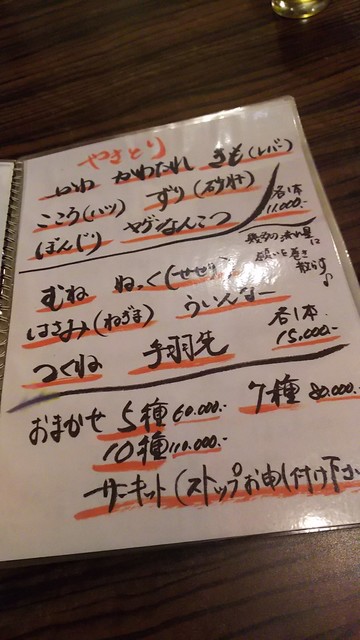 やきとり
かわ かわたれ きも(レバー)
こころ(ハツ) ずり(砂肝)
ぼんじり ヤゲンなんこつ 各1本 11,000.-
むね ねっく(せせり)
はさみ(ねぎま) ういんなー
つくね 手羽先 各1本 15,000.-
おまかせ 5種 60.000.- 7種 80.000.-
10種 110.000.-
サーキット(ストップお申し付け下さい